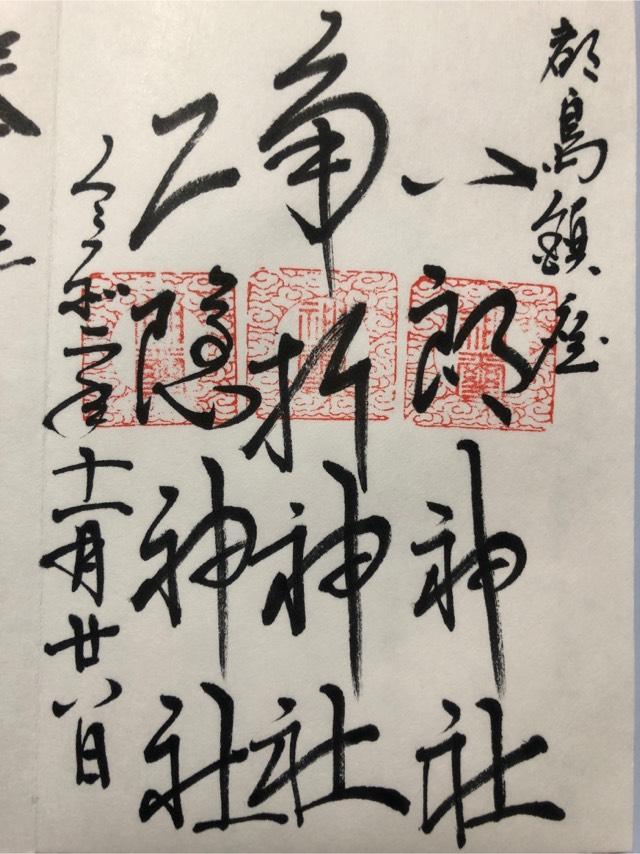 都島鎮座
八郎神社
角折神社
隠神社
令和二年十一月廿八日